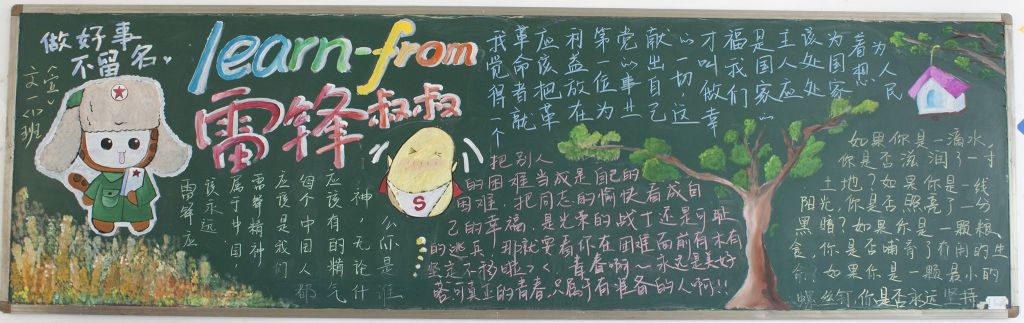 做好事
不留名
文宣(1)班
learn-from
雷锋叔叔
S
我觉得一个
革命者就
应该把革
利益放在
第一位为
党的事业
献出自己
一切这
才叫做幸
福我们
是国家
主人应
该处处
为国家
着想
为人民
雷锋应
该永远
属于中国
雷锋精神
应该是我们
每个中国人都
应该有的精气
神,无论什
么你是谁
把别人
的困难当成是自己的
困难,把同志的愉快看成自
己的幸福,是光荣的战士还是可耻
的逃兵,那就要看你在困难面前有木有
坚定不移啦~,青春啊~永远是美好
若可真正的青春,只属于有准备的人啊!!
如果你是一滴水,
你是否滋润了一寸
土地?如果你是一线
阳光,你是否照亮了一分
黑暗?如果你是一颗粮
食,你是否哺育了有用的生
命?如果你是一颗最小的
螺丝钉,你是否永远坚持